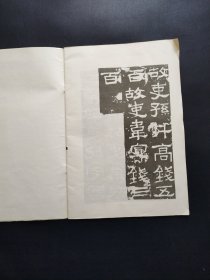 故吏孫升高錢五
百故吏韋錢三
百